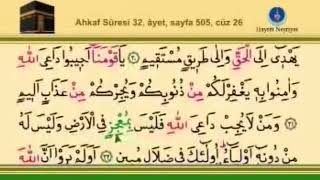 Ahkaf Sûresi 32, âyet, sayfa 505, cüz 26
Hayrat Neşriyat
يَهْدٖٓى اِلَى الْحَقِّ وَاِلٰى طَرٖيقٍ مُسْتَقٖيمٍ ﴿٣٠﴾ يَا قَوْمَنَٓا اَجٖيبُوا دَاعِىَ اللّٰهِ
وَاٰمِنُوا بِهٖ يَغْفِرْلَكُمْ مِنْ ذُنُوبِكُمْ وَيُجِرْكُمْ مِنْ عَذَابٍ اَلٖيمٍ
﴿٣١﴾ وَمَنْ لَا يُجِبْ دَاعِىَ اللّٰهِ فَلَيْسَ بِمُعْجِزٍ فِى الْاَرْضِ وَلَيْسَ لَهُ
مِنْ دُونِهٖٓ اَوْلِيَٓاءُ اُولٰٓئِكَ فٖى ضَلَالٍ مُبٖينٍ ﴿٣٢﴾ اَوَلَمْ يَرَوْا اَنَّ اللّٰهَ